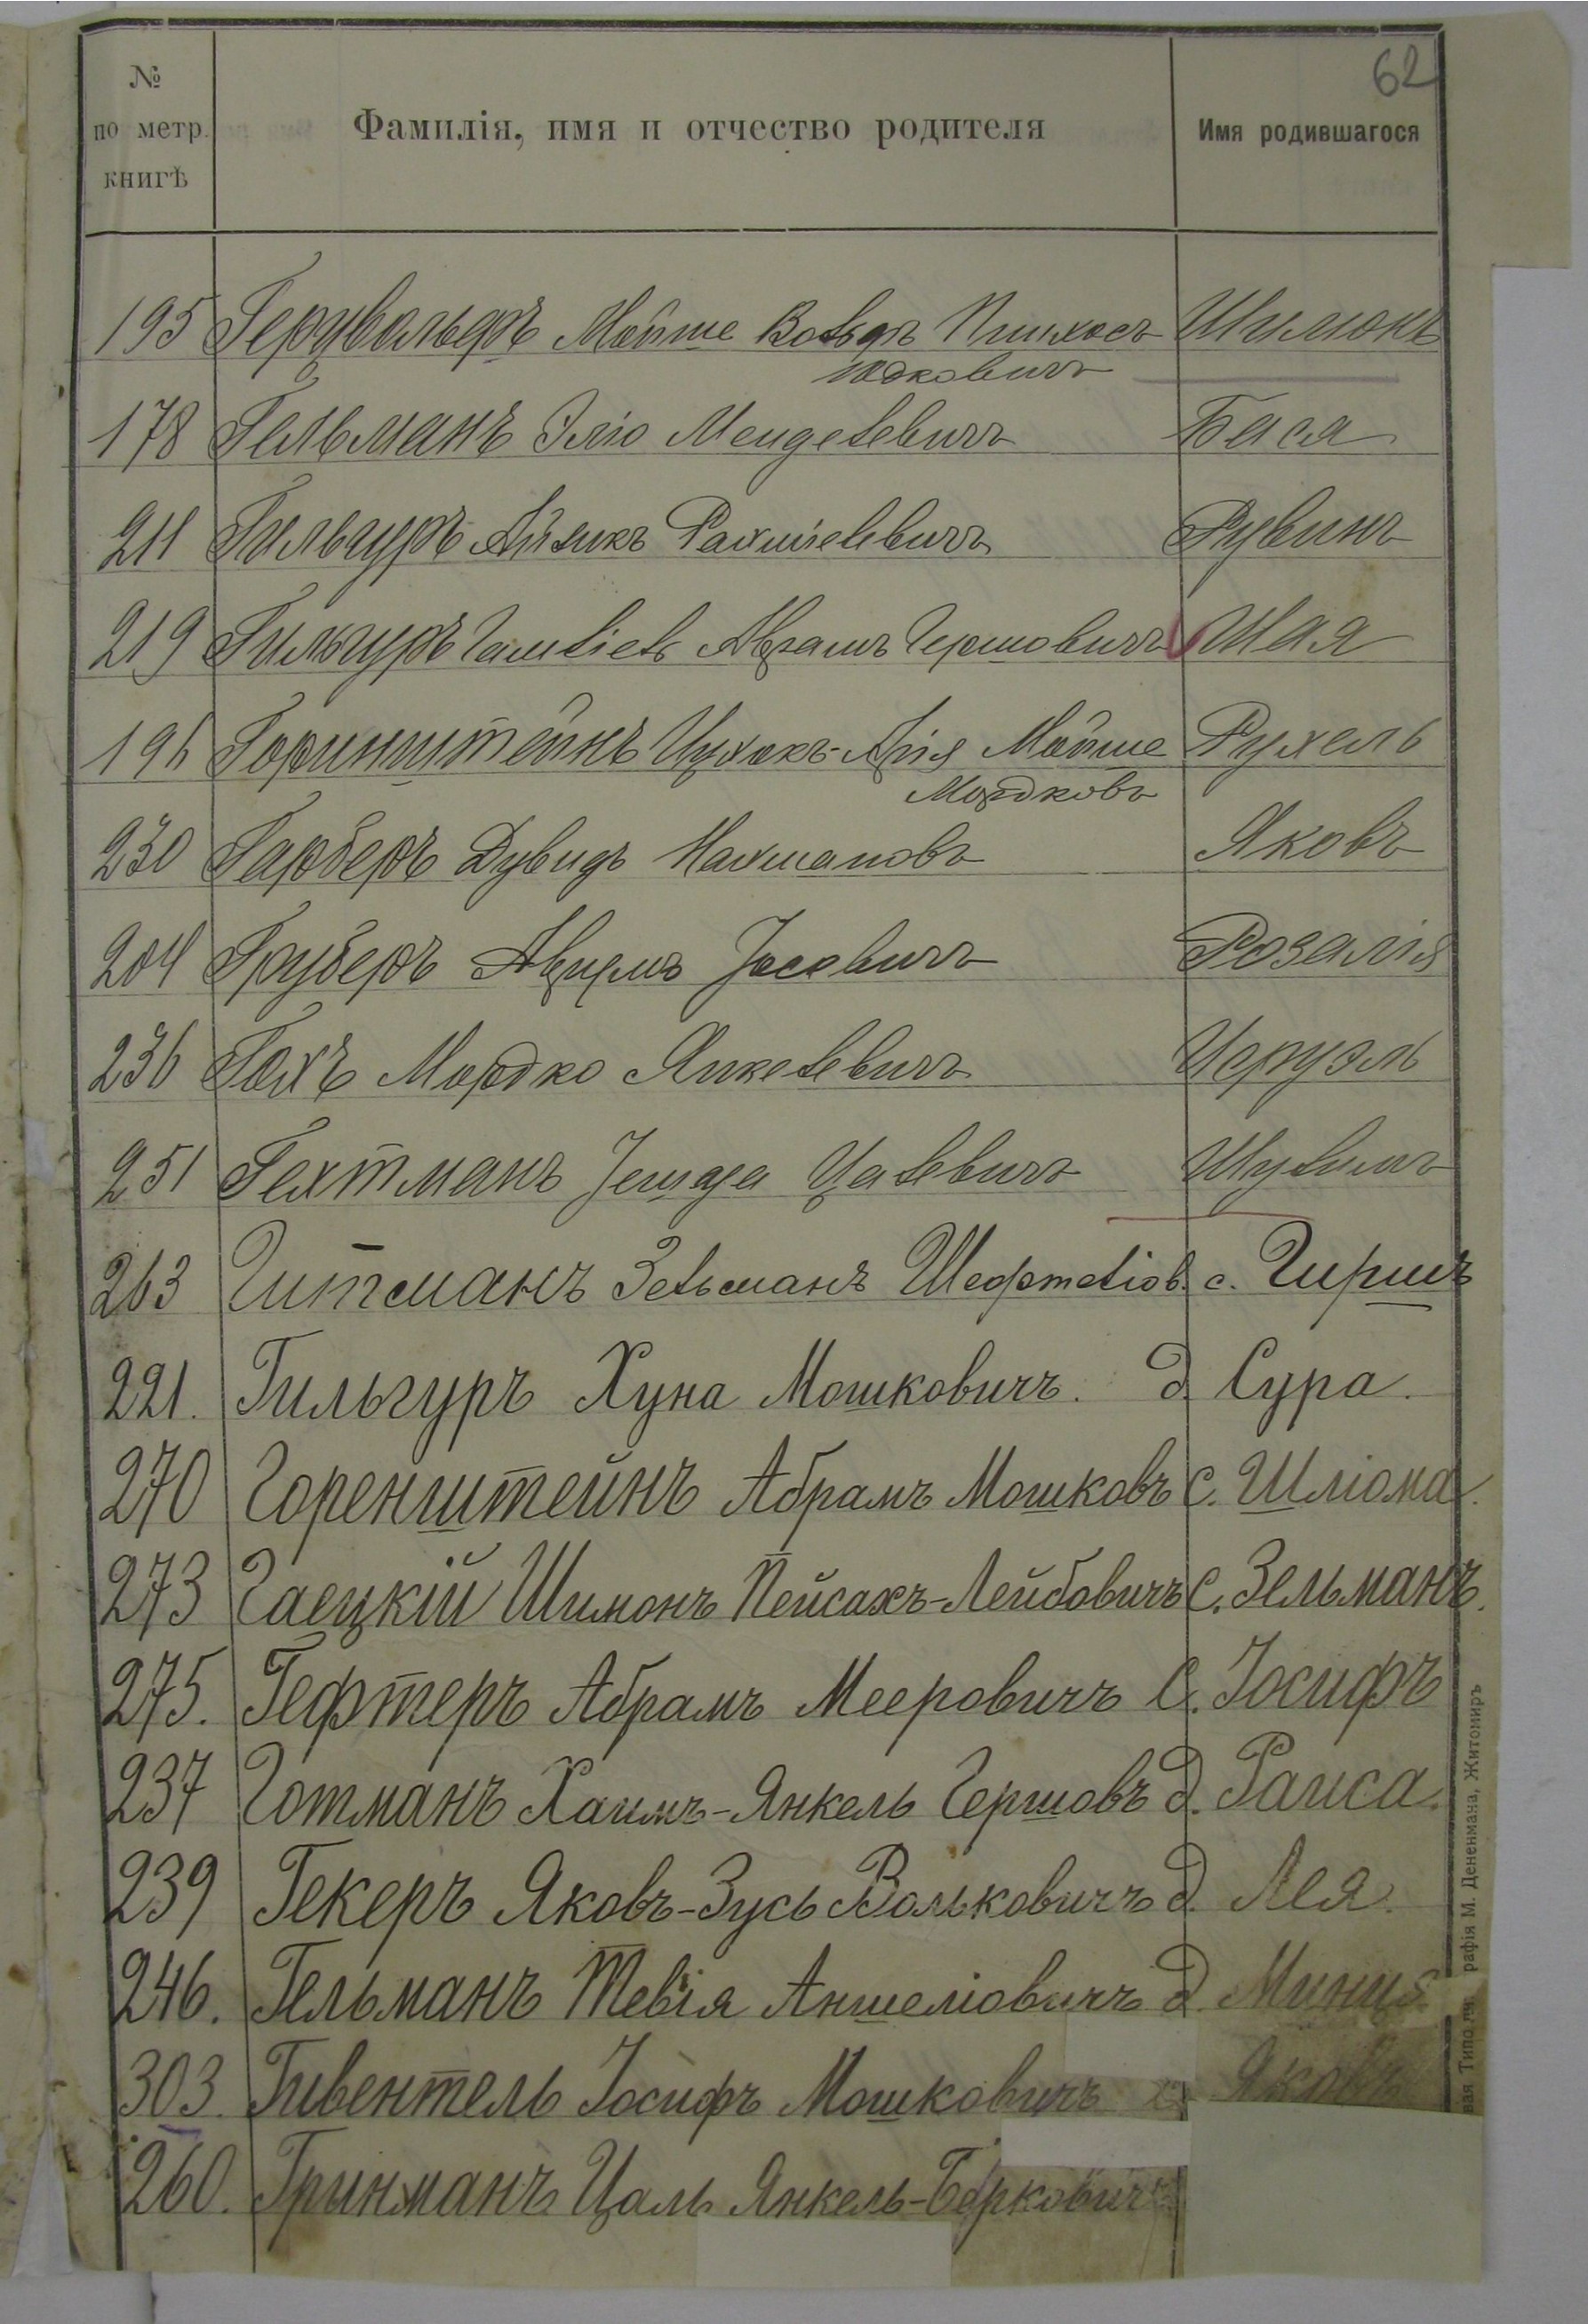 62
№ по метр. книгѣ Фамилія, имя и отчество родителя Имя родившагося
195 Герцвольфъ Мойше Вольфъ Пинхасъ Шлюмокъ
Юдковичъ
178 Гельманъ Эліо Менделевичъ Бася
211 Гильгуръ Айзикъ Рахміелевичъ Рувинъ
219 Гильгуръ Гамшіель Абрамъ Гершовичъ Шая
196 Горинштейнъ Ицхокъ-Арія Мойше Рухель
Мордковъ
230 Гарберъ Дувидъ Нахмановъ Яковъ
204 Груберъ Аврумъ Іосевичъ Розалія
236 Гохъ Мордко Янкелевичъ Исруэль
251 Гехтманъ Іешуа Цалевичъ Шулимъ
263 Гитманъ Зельманъ Шефтеліов. с. Гиршъ
221. Гильгуръ Хуна Мошковичъ. д. Сура.
270 Горенштейнъ Абрамъ Мошковъ с. Шліома.
273 Гаецкій Шимонъ Пейсахъ-Лейбовичъ с. Зельманъ.
275. Гефтеръ Абрамъ Мееровичъ с. Іосифъ
237 Готманъ Хаимъ-Янкель Гершовъ д. Раиса.
239 Гекеръ Яковъ-Зусь Вольковичъ д. Лея.
246. Гельманъ Тевія Аншеліовичъ д.
303. Гивентель Іосифъ Мошковичъ с. Яковъ
260. Гринманъ Цаль Янкель-Берковичъ
рафія М. Дененмана, Житомиръ